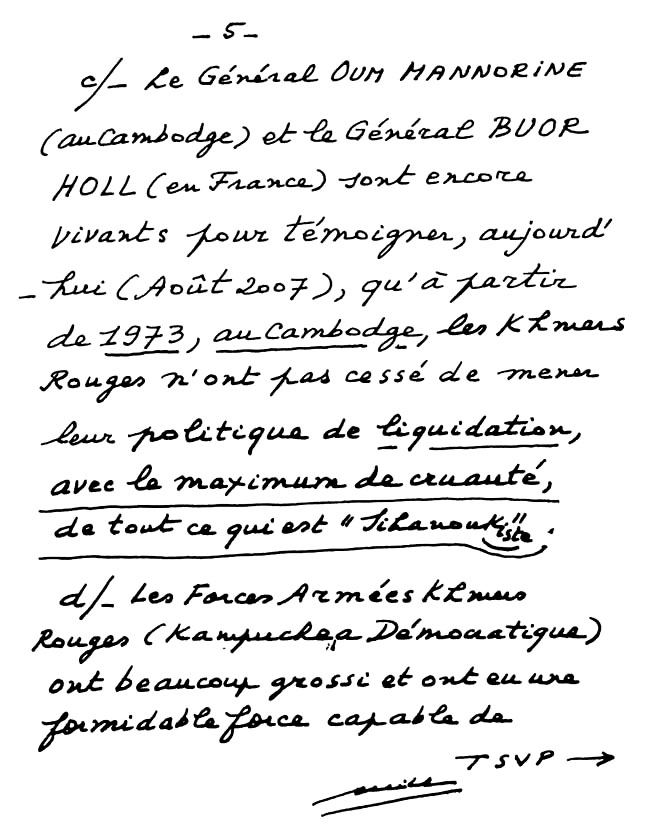 - 5 -
c/- Le Général OUM MANNORINE
(au Cambodge) et le Général BUOR
HOLL (en France) sont encore
vivants pour témoigner, aujourd'
-hui (Août 2007), qu'à partir
de 1973, au Cambodge, les Khmers
Rouges n'ont pas cessé de mener
leur politique de liquidation,
avec le maximum de cruauté,
de tout ce qui est "Sihanoukiste".
d/- Les Forces Armées Khmers
Rouges (Kampuchea Démocratique)
ont beaucoup grossi et ont eu une
formidable force capable de
TSVP →